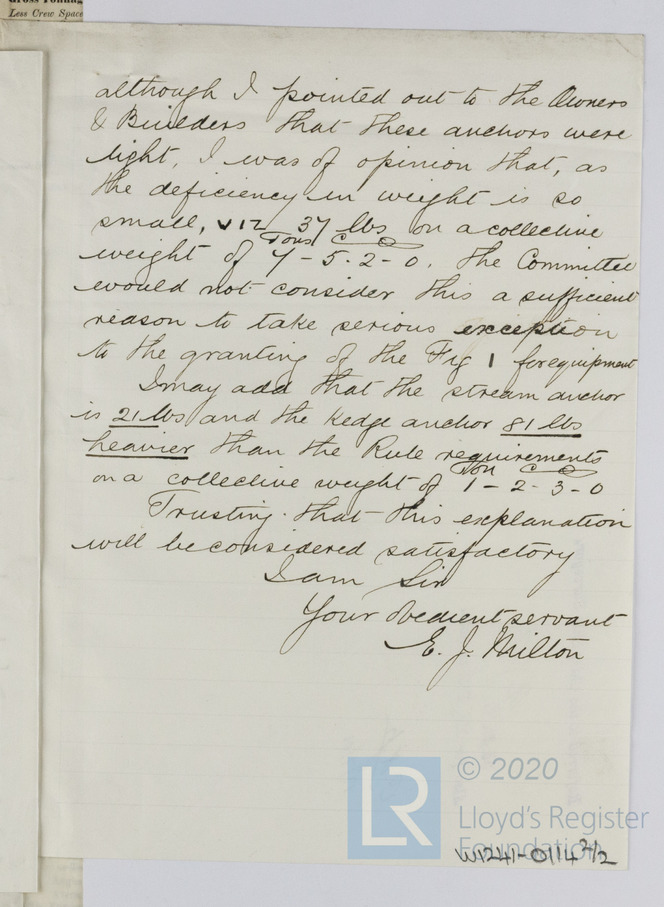 Gross Tonnag
Less Crew Space
although I pointed out to the Owners
& Builders that these anchors were
light, I was of opinion that, as
the deficiency in weight is so
small, viz 37 lbs on a collective
Tons C Q
weight of 7-5-2-0. The Committee
would not consider this a sufficient
reason to take serious exception
to the granting of the Fig 1 for equipment
I may add that the stream anchor
is 21 lbs and the kedge anchor 81 lbs
heavier than the Rule requirements
Ton C Q
on a collective weight of 1-2-3-0
Trusting that this explanation
will be considered satisfactory
I am Sir
Your obedient servant
E. J. Milton
LR
© 2020
Lloyd's Register
Foundation
W1241-0114 2/2